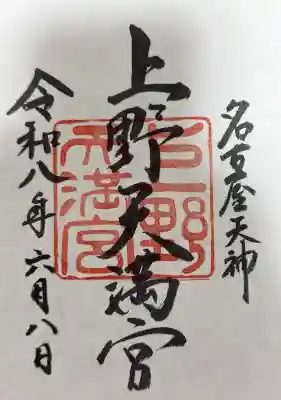 名古屋天神
上野天満宮
上野
天満宮
令和八年六月八日